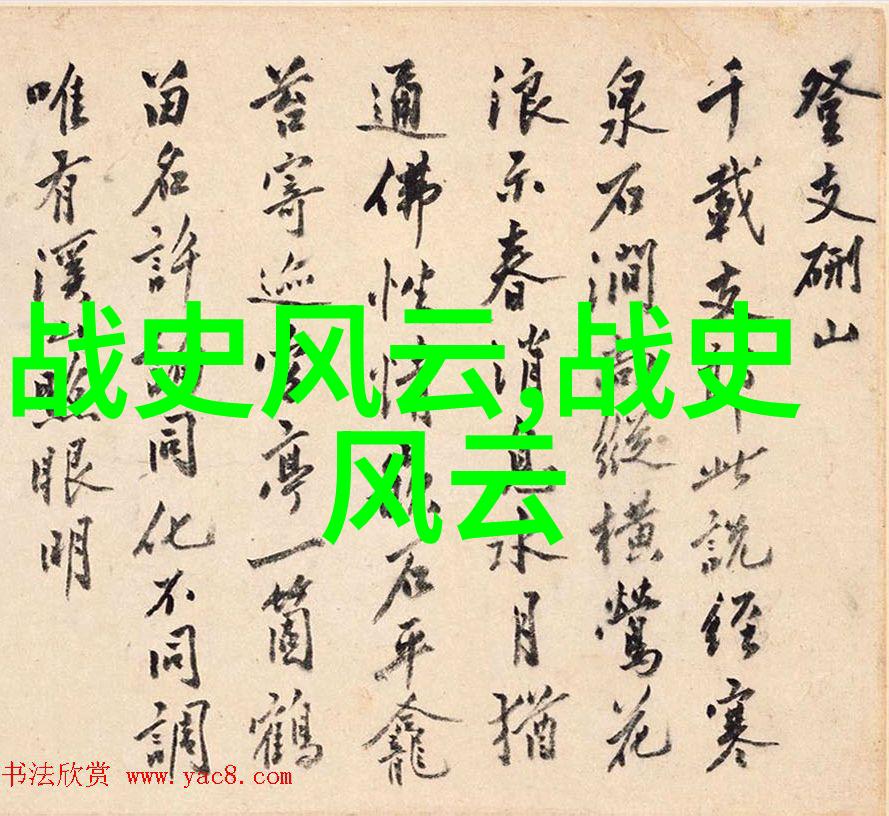 登支硎山
千載支郎此說經寒
泉石澗尚縱橫鶯花
浪示春消息水月猶
通佛性情石平龕
苔寄迹空亭一箇鶴
留名許詢同化不同調
唯有溪山照眼明
战史风云,战史
风云
书法欣赏 www.yac8.com